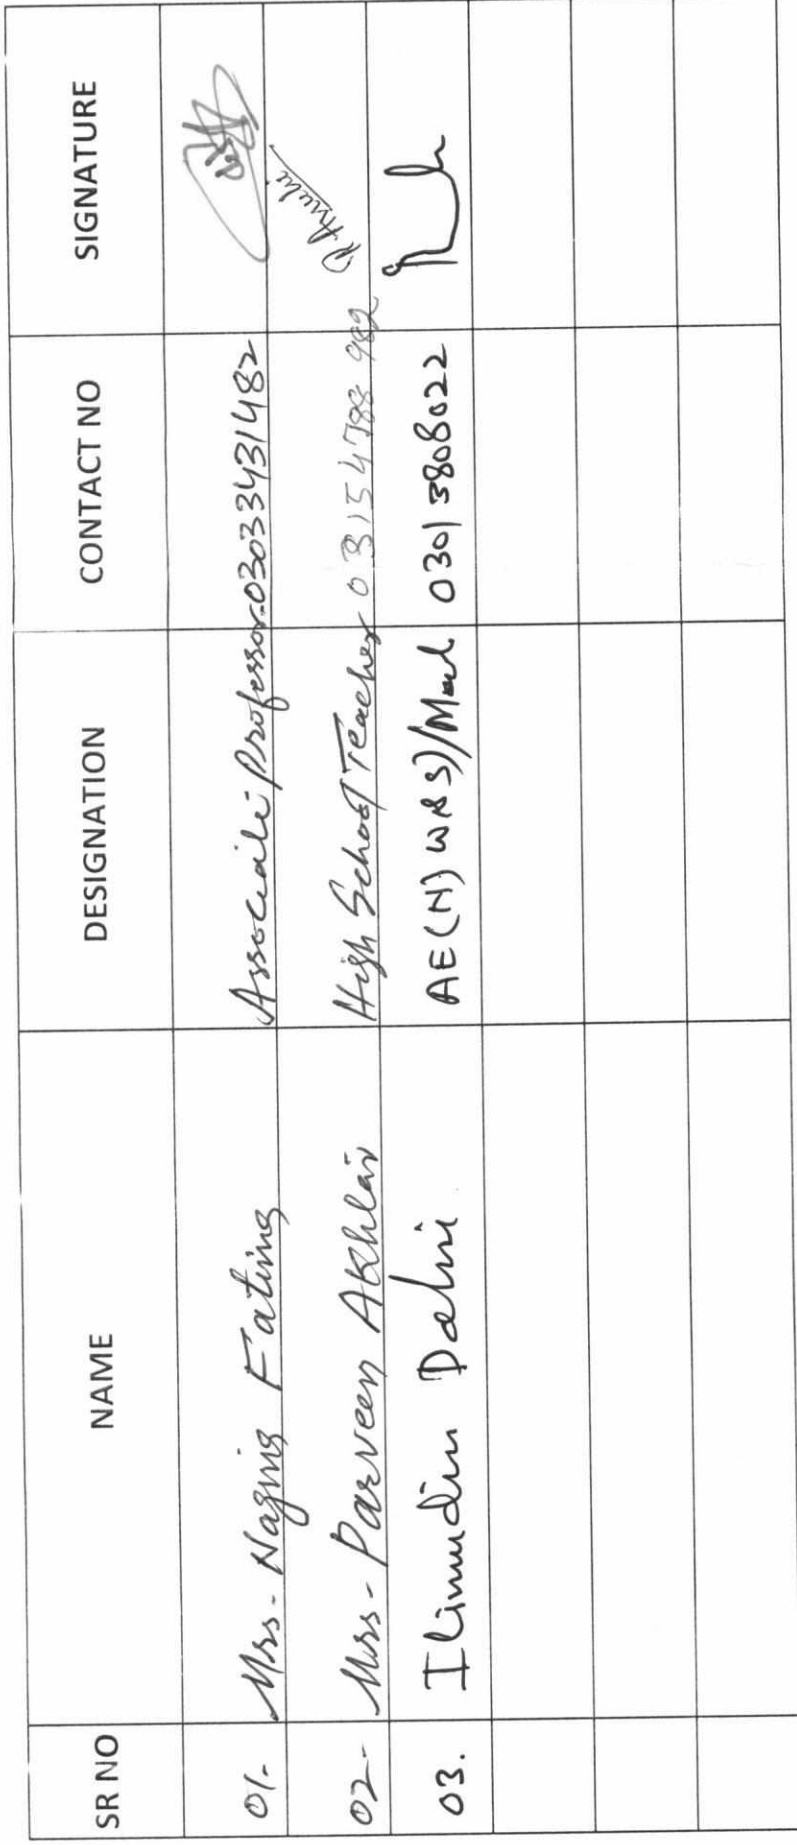 SR NO NAME DESIGNATION CONTACT NO SIGNATURE
01- Mrs- Nazing Fating Associate Professor 03033431482
02- Mrs- Parveen Akhtar High School Teacher 03154788982
03. Ilimudin Dahri AE(N) 03013808022